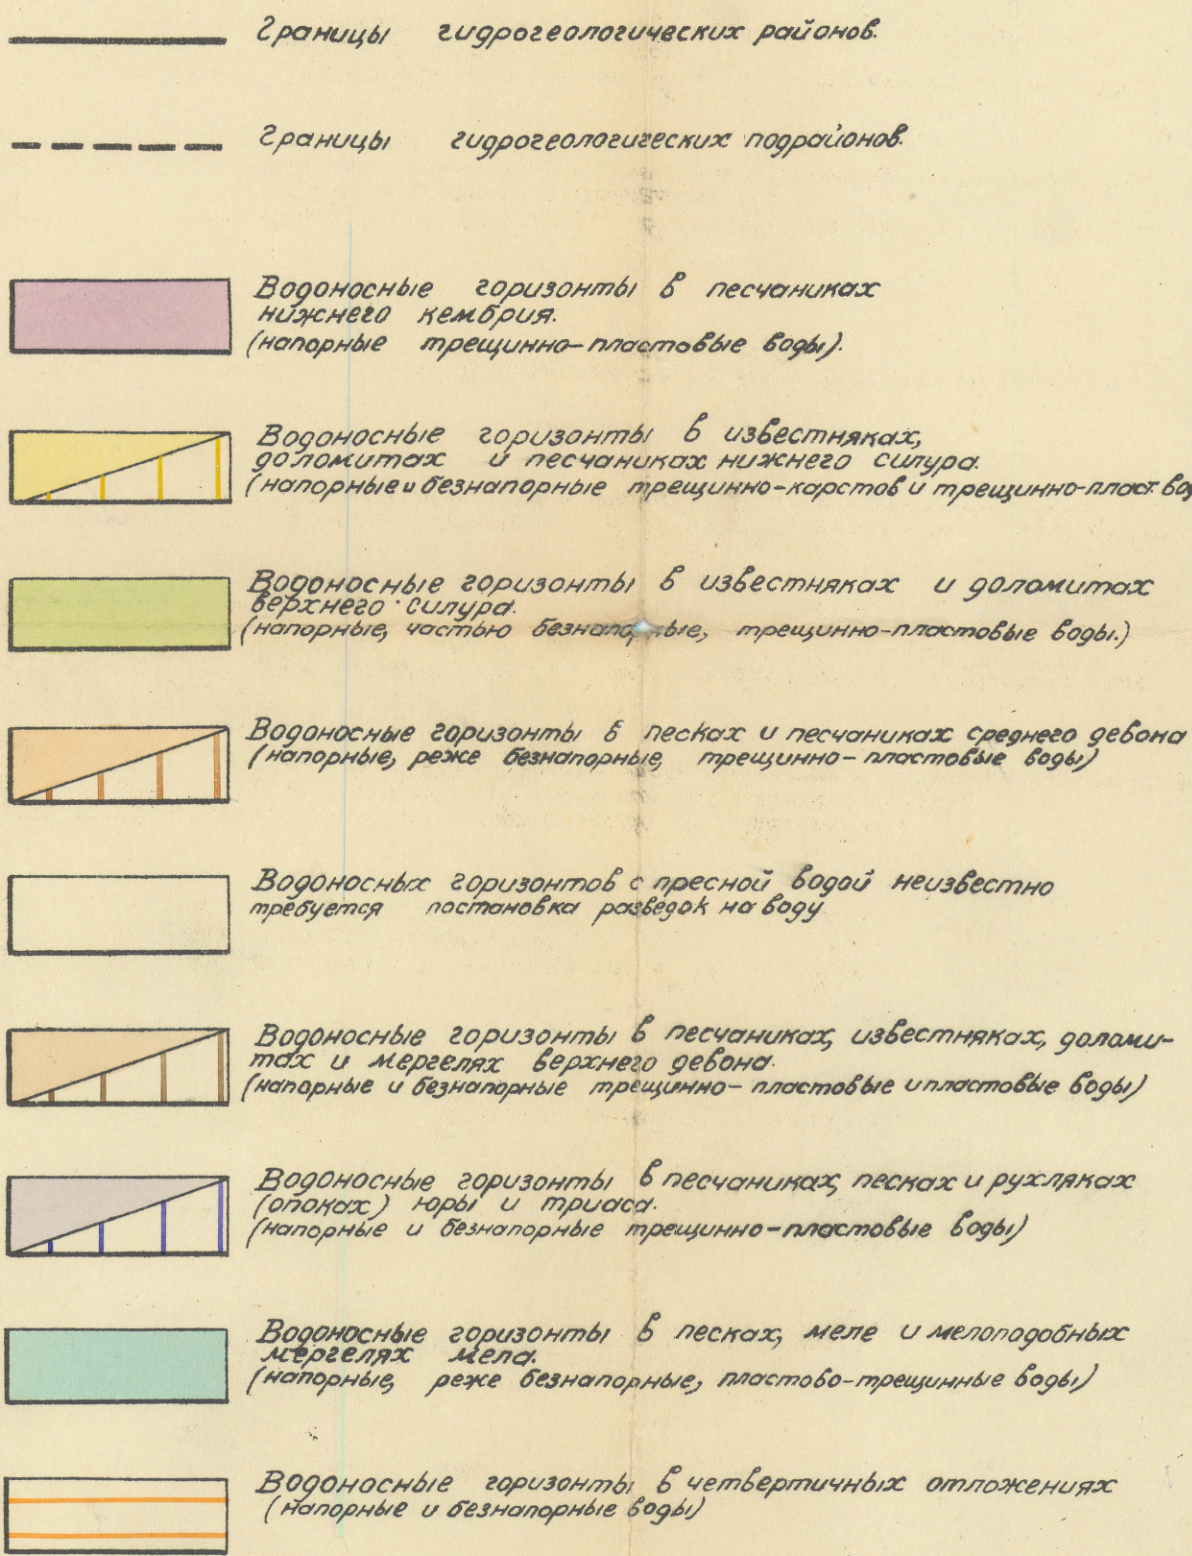 Границы гидрогеологических районов.
Границы гидрогеологических подрайонов.
Водоносные горизонты в песчаниках
нижнего кембрия.
(напорные трещинно-пластовые воды).
Водоносные горизонты в известняках,
доломитах и песчаниках нижнего силура.
(напорные и безнапорные трещинно-карстов и трещинно-пласт. во
Водоносные горизонты в известняках и доломитах
верхнего силура.
(напорные, частью безнапорные, трещинно-пластовые воды.)
Водоносные горизонты в песках и песчаниках среднего девона
(напорные, реже безнапорные, трещинно-пластовые воды)
Водоносных горизонтов с пресной водой неизвестно
требуется постановка разведок на воду
Водоносные горизонты в песчаниках, известняках, доломи-
тах и мергелях верхнего девона.
(напорные и безнапорные трещинно-пластовые и пластовые воды)
Водоносные горизонты в песчаниках, песках и рухляках
(опоках) юры и триаса.
(напорные и безнапорные трещинно-пластовые воды)
Водоносные горизонты в песках, меле и мелоподобных
мергелях мела.
(напорные, реже безнапорные, пластово-трещинные воды)
Водоносные горизонты в четвертичных отложениях
(напорные и безнапорные воды)